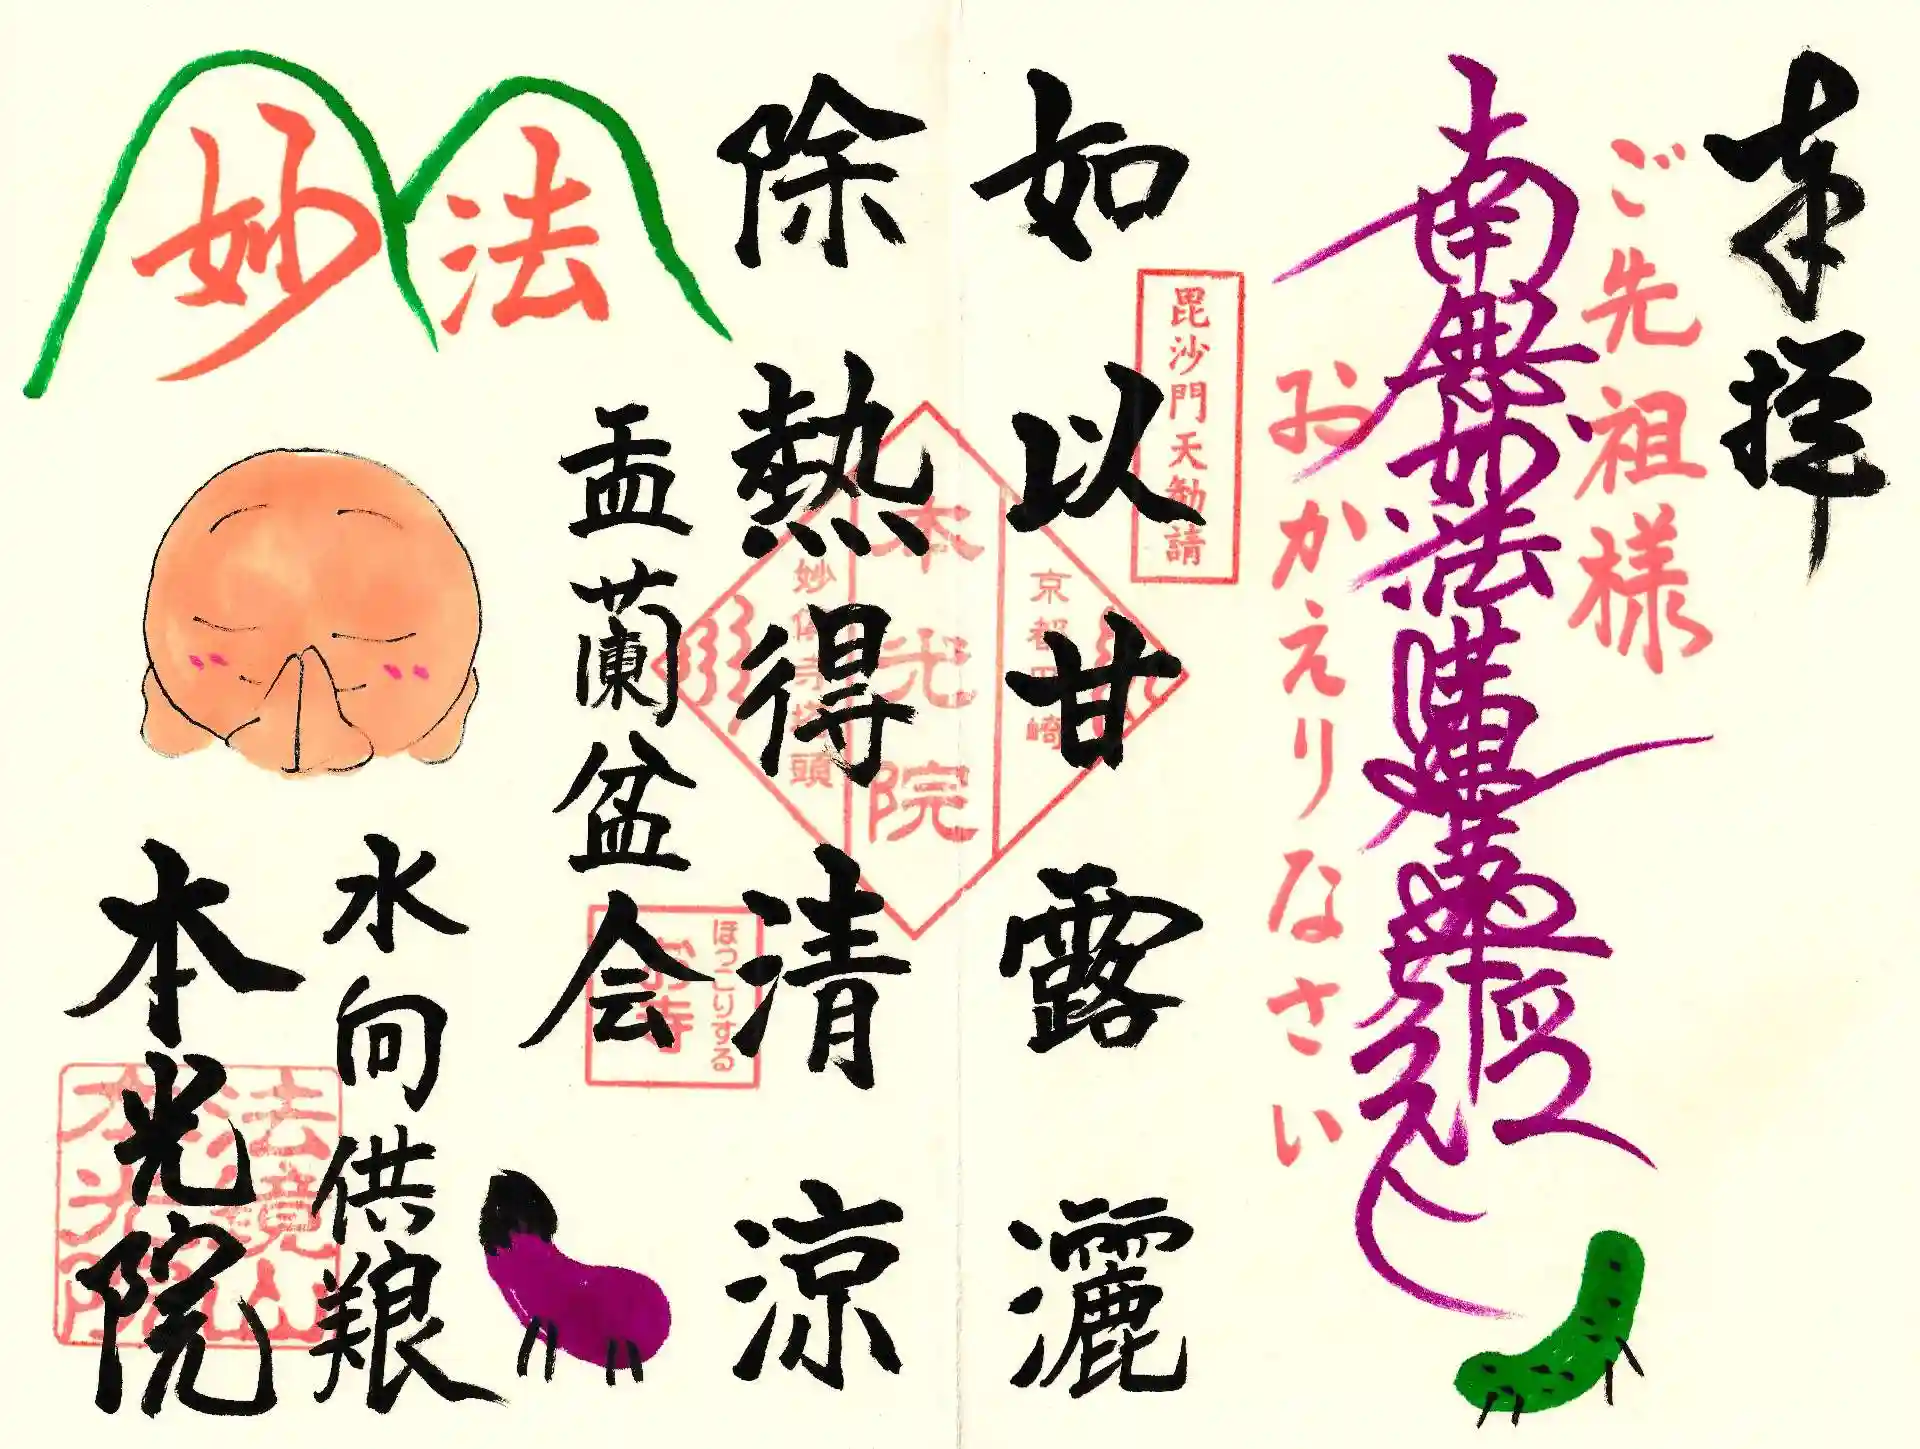 奉拝
ご先祖様
南無妙法蓮華経
おかえりなさい
毘沙門天勧請
如以甘露灑
除熱得清涼
京都
本光院
塔頭
盂蘭盆会
ほっこりする
お寺
妙法
水向供養
本光院
法鏡山
本光院